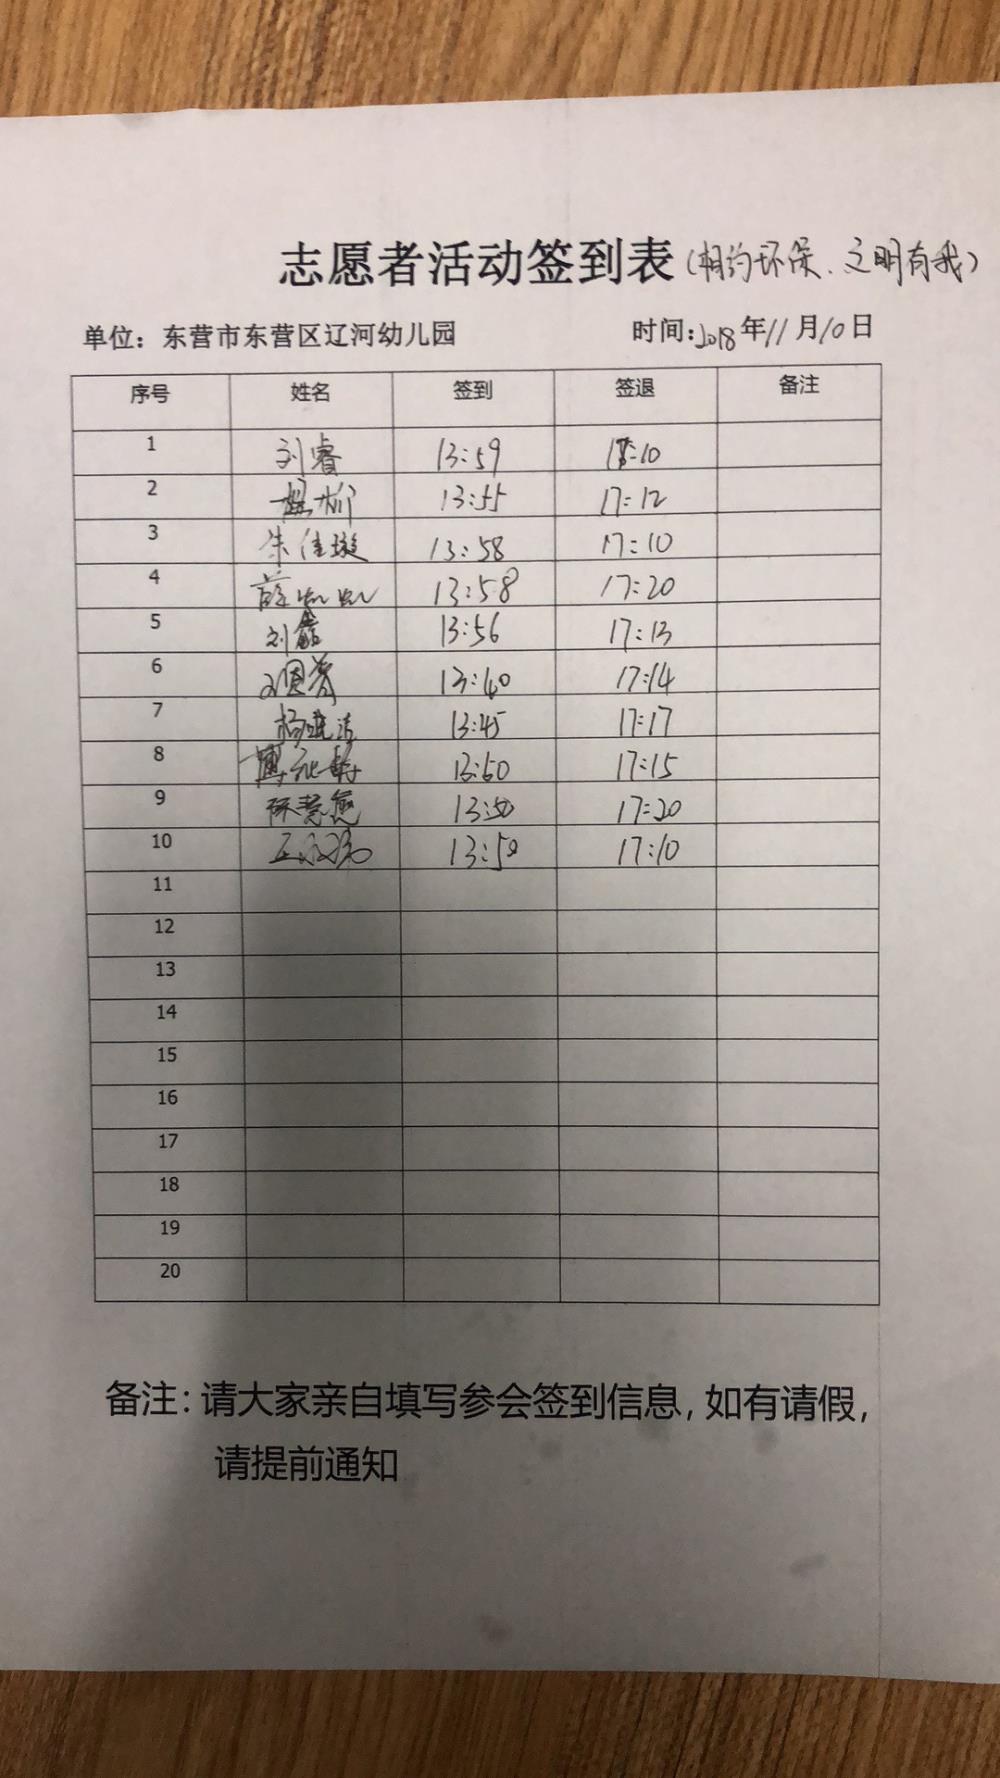 志愿者活动签到表(相约环保、文明有我)
单位：东营市东营区辽河幼儿园 时间:2018年11月10日
序号 姓名 签到 签退 备注
1 刘睿 13:59 17:10
2 13:55 17:12
3 朱佳璇 13:58 17:10
4 薛虹虹 13:58 17:20
5 刘鑫 13:56 17:13
6 13:40 17:14
7 杨晓洁 13:45 17:17
8 13:50 17:15
9 13:50 17:20
10 13:50 17:10
11
12
13
14
15
16
17
18
19
20
备注：请大家亲自填写参会签到信息，如有请假，
请提前通知